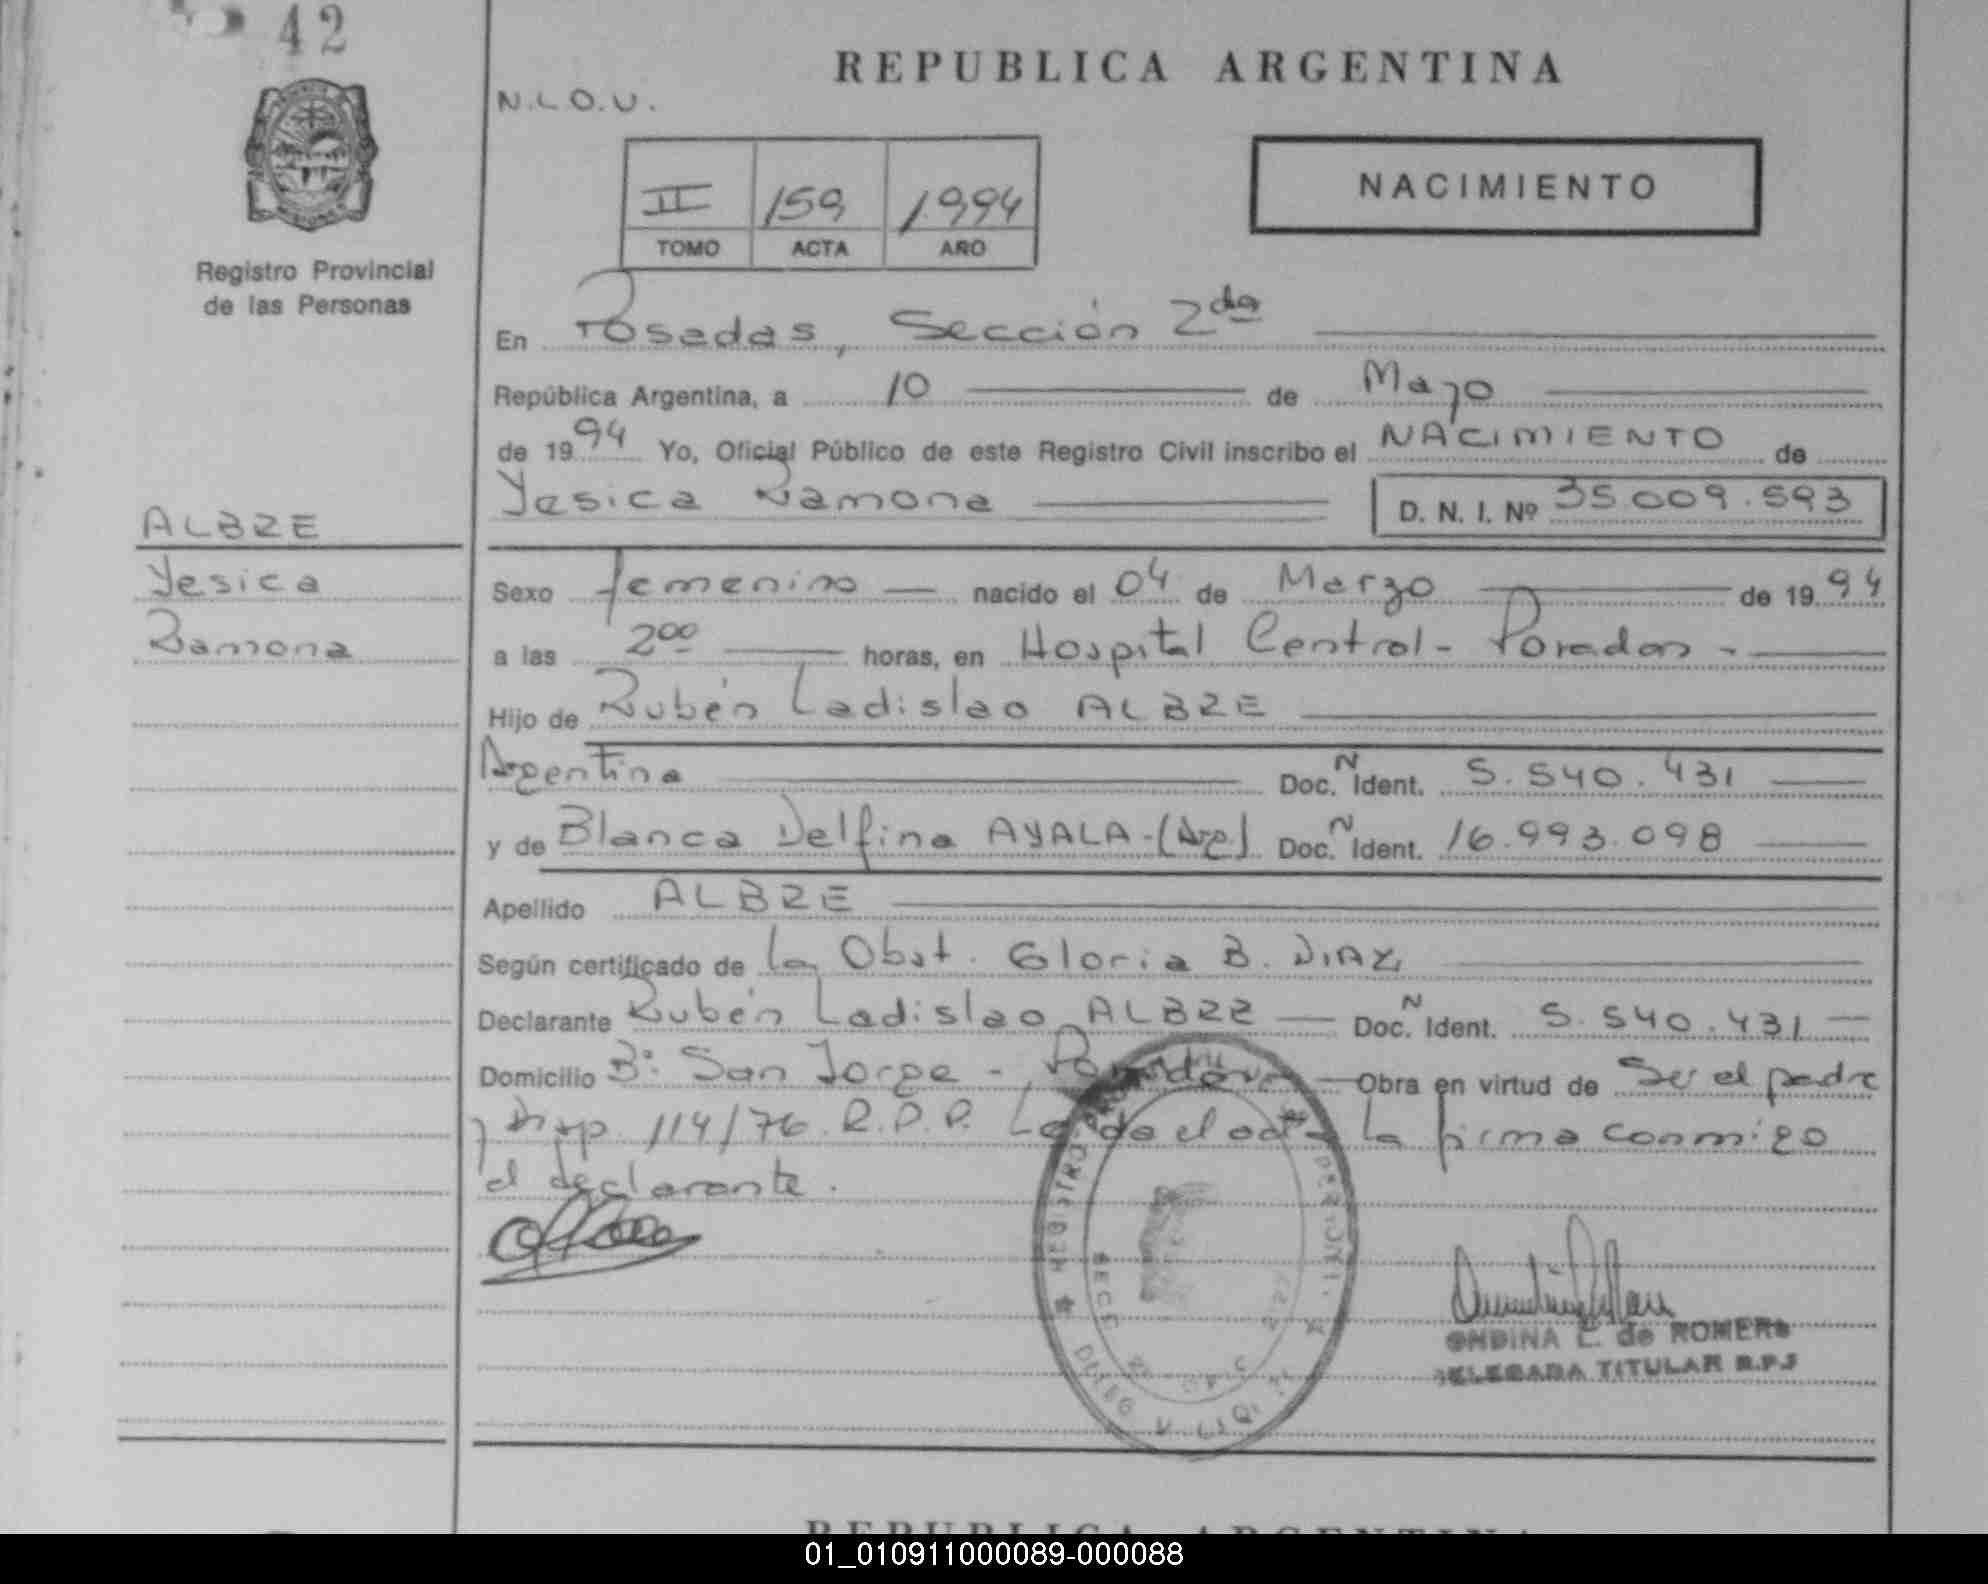 42
REPUBLICA ARGENTINA
N.L.O.U.
II 159 1994
TOMO ACTA AÑO
NACIMIENTO
Registro Provincial
de las Personas
En Posadas, Sección 2da
República Argentina, a 10 de Mayo
de 1994 Yo, Oficial Público de este Registro Civil inscribo el NACIMIENTO de
Yesica Ramona D. N. I. Nº 35.009.593
ALBRE
Yesica
Ramona
Sexo femenino nacido el 04 de Marzo de 1994
a las 2 00 horas, en Hospital Central - Posadas -
Hijo de Rubén Ladislao ALBRE
Argentina Doc. N Ident. 5.540.431
y de Blanca Delfina AYALA - (Arg) Doc. N Ident. 16.993.098
Apellido ALBRE
Según certificado de la Obst. Gloria B. DIAZ
Declarante Rubén Ladislao ALBRE Doc. N Ident. 5.540.431
Domicilio B: San Jorge - Posadas Obra en virtud de Ser el padre
y Disp. 114/76 R.P.P. Leida el acta la firma conmigo
el declarante.
ONDINA E. de ROMERO
DELEGADA TITULAR R.P.P
REPUBLICA ARGENTINA
01_010911000089-000088